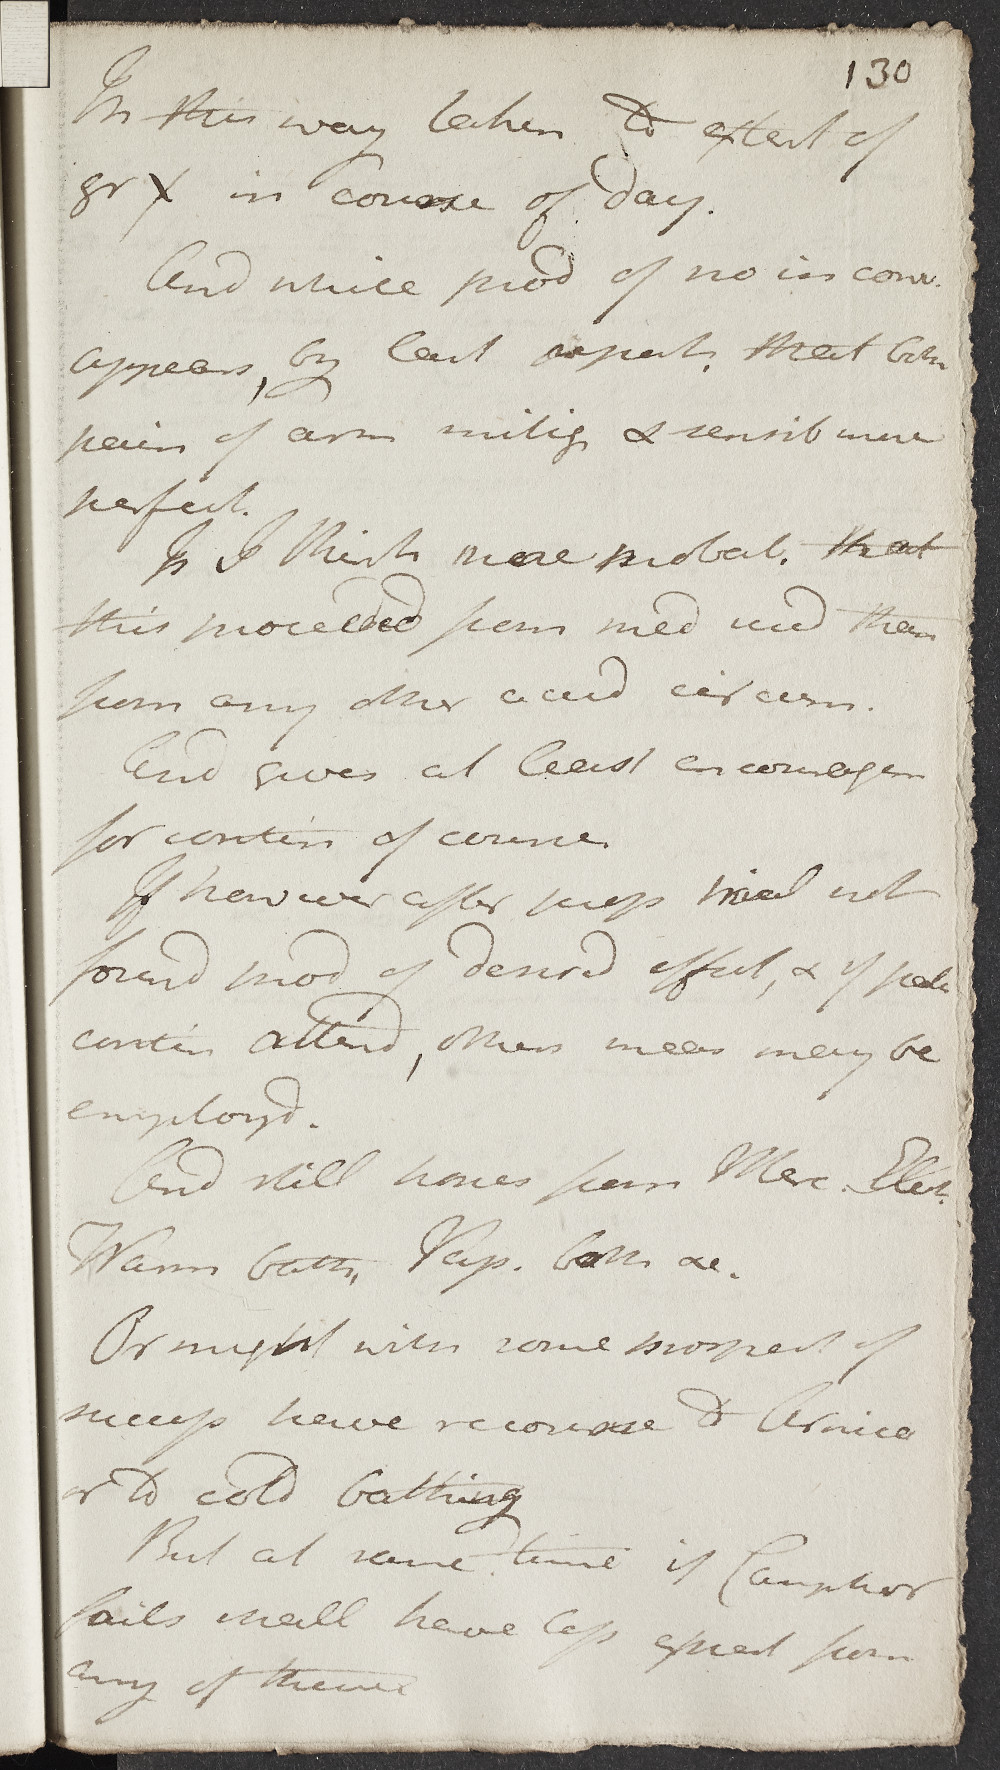 130
In this way taken to extent of
gr X in course of day.
And while prod of no in conv.
appears, by last reports, that both
pain of arm mitig & sensib more
perfect.
Is I think more probab. that
this proceeded from med used than
from any other accid circum.
And gives at least encouragem
for contin of course.
If however after prop trial not
found prod of desird effect, & if
contin attend, others meas may be
employd.
And still hopes from Merc. Elect.
Warm bath, Vap. bath &c.
Or might with some prospect of
success have recourse to Arnica
or to cold bathing
But at same time if Camphor
fails shall have less expect from
any of these